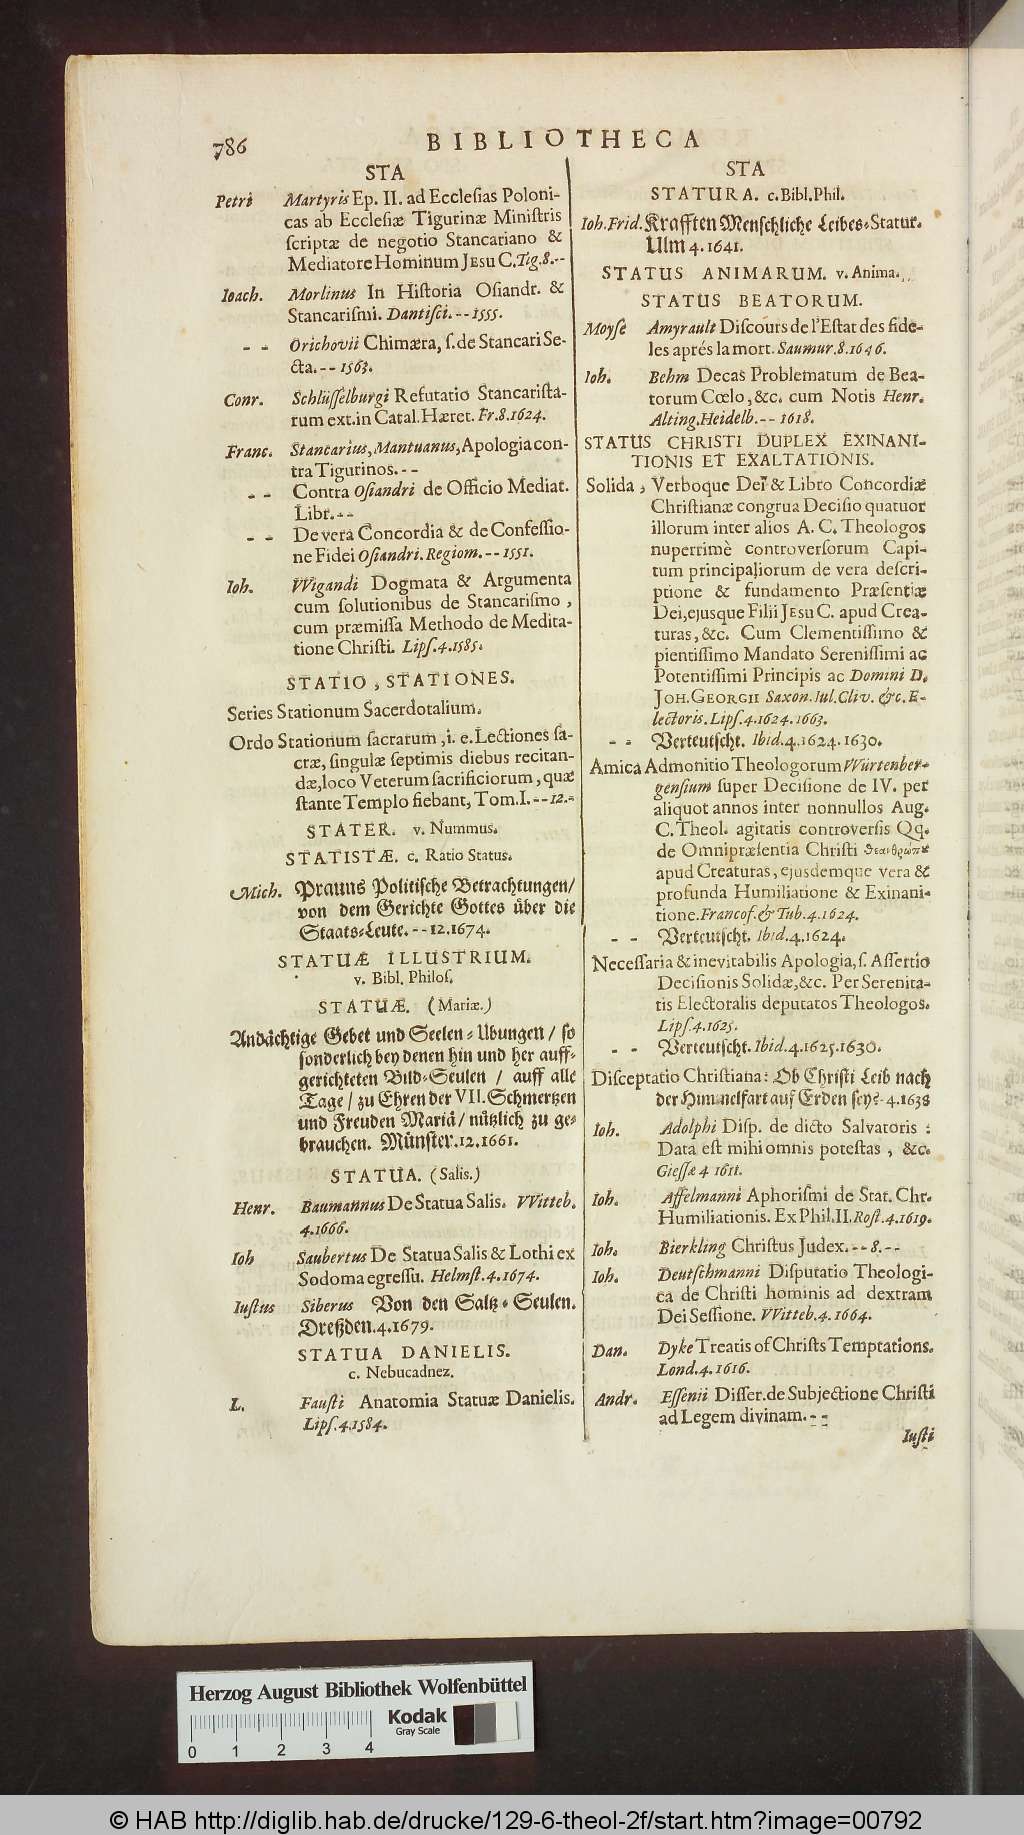 786
BIBLIOTHECA
STA
Petri Martyris Ep. II. ad Ecclesias Poloni-
cas ab Ecclesiæ Tigurinæ Ministris
scriptæ de negotio Stancariano &
Mediatore Hominum JESU C. Tig. 8. --
Ioach. Morlinus In Historia Osiandr. &
Stancarismi. Dantisci. -- 1555.
- - Orichovii Chimæra, s. de Stancari Se-
cta. -- 1563.
Conr. Schlüsselburgi Refutatio Stancarista-
rum ext. in Catal. Hæret. Fr. 8. 1624.
Franc. Stancarius, Mantuanus, Apologia con-
tra Tigurinos. --
- - Contra Osiandri de Officio Mediat.
Libr. --
- - De vera Concordia & de Confessio-
ne Fidei Osiandri. Regiom. -- 1551.
Ioh. VVigandi Dogmata & Argumenta
cum solutionibus de Stancarismo,
cum præmissa Methodo de Medita-
tione Christi. Lips. 4. 1585.
STATIO, STATIONES.
Series Stationum Sacerdotalium.
Ordo Stationum sacrarum, i. e. Lectiones sa-
cræ, singulæ septimis diebus recitan-
dæ, loco Veterum sacrificiorum, quæ
stante Templo fiebant, Tom. I. -- 12. -
STATER. v. Nummus.
STATISTÆ. c. Ratio Status.
Mich. Prauns Politische Betrachtungen/
von dem Gerichte Gottes über die
Staats-Leute. -- 12. 1674.
STATUÆ ILLUSTRIUM.
v. Bibl. Philos.
STATUÆ. (Mariæ.)
Andächtige Gebet und Seelen-Ubungen / so
sonderlich bey denen hin und her auff-
gerichteten Bild-Seulen / auff alle
Tage / zu Ehren der VII. Schmertzen
und Freuden Mariä / nützlich zu ge-
brauchen. Münster. 12. 1661.
STATUA. (Salis.)
Henr. Baumannus De Statua Salis. VVitteb.
4. 1666.
Ioh Saubertus De Statua Salis & Lothi ex
Sodoma egressu. Helmst. 4. 1674.
Iustus Siberus Von den Saltz-Seulen.
Dreßden. 4. 1679.
STATUA DANIELIS.
c. Nebucadnez.
L. Fausti Anatomia Statuæ Danielis.
Lips. 4. 1584.
STA
STATURA. c. Bibl. Phil.
Ioh. Frid. Krafften Menschliche Leibes-Statur.
Ulm 4. 1641.
STATUS ANIMARUM. v. Anima.
STATUS BEATORUM.
Moyse Amyrault Discours de l'Estat des fide-
les aprés la mort. Saumur. 8. 1646.
Ioh. Behm Decas Problematum de Bea-
torum Cœlo, &c. cum Notis Henr.
Alting. Heidelb. -- 1618.
STATUS CHRISTI DUPLEX EXINANI-
TIONIS ET EXALTATIONIS.
Solida, Verboque Dei & Libro Concordiæ
Christianæ congrua Decisio quatuor
illorum inter alios A. C. Theologos
nuperrimè controversorum Capi-
tum principaliorum de vera descri-
ptione & fundamento Præsentiæ
Dei, ejusque Filii JESU C. apud Crea-
turas, &c. Cum Clementissimo &
pientissimo Mandato Serenissimi ac
Potentissimi Principis ac Domini D.
JOH. GEORGII Saxon. Iul. Cliv. &c. E-
lectoris. Lips. 4. 1624. 1663.
- - Verteutscht. Ibid. 4. 1624. 1630.
Amica Admonitio Theologorum Würtenber-
gensium super Decisione de IV. per
aliquot annos inter nonnullos Aug.
C. Theol. agitatis controversis Qq.
de Omnipræsentia Christi
apud Creaturas, ejusdemque vera &
profunda Humiliatione & Exinani-
tione. Francof. & Tub. 4. 1624.
- - Verteutscht. Ibid. 4. 1624.
Necessaria & inevitabilis Apologia, s. Assertio
Decisionis Solidæ, &c. Per Serenita-
tis Electoralis deputatos Theologos.
Lips. 4. 1625.
- - Verteutscht. Ibid. 4. 1625. 1630.
Disceptatio Christiana: Ob Christi Leib nach
der Himmelfart auf Erden sey? - 4. 1638
Ioh. Adolphi Disp. de dicto Salvatoris:
Data est mihi omnis potestas, &c.
Giessæ 4 1611.
Ioh. Affelmanni Aphorismi de Stat. Chr.
Humiliationis. Ex Phil. II. Rost. 4. 1619.
Ioh. Bierkling Christus Judex. -- 8. --
Ioh. Deutschmanni Disputatio Theologi-
ca de Christi hominis ad dextram
Dei Sessione. VVitteb. 4. 1664.
Dan. Dyke Treatis of Christs Temptations.
Lond. 4. 1616.
Andr. Essenii Disser. de Subjectione Christi
ad Legem divinam. - -
Iusti
Herzog August Bibliothek Wolfenbüttel
Kodak
Gray Scale
0 1 2 3 4
© HAB http://diglib.hab.de/drucke/129-6-theol-2f/start.htm?image=00792